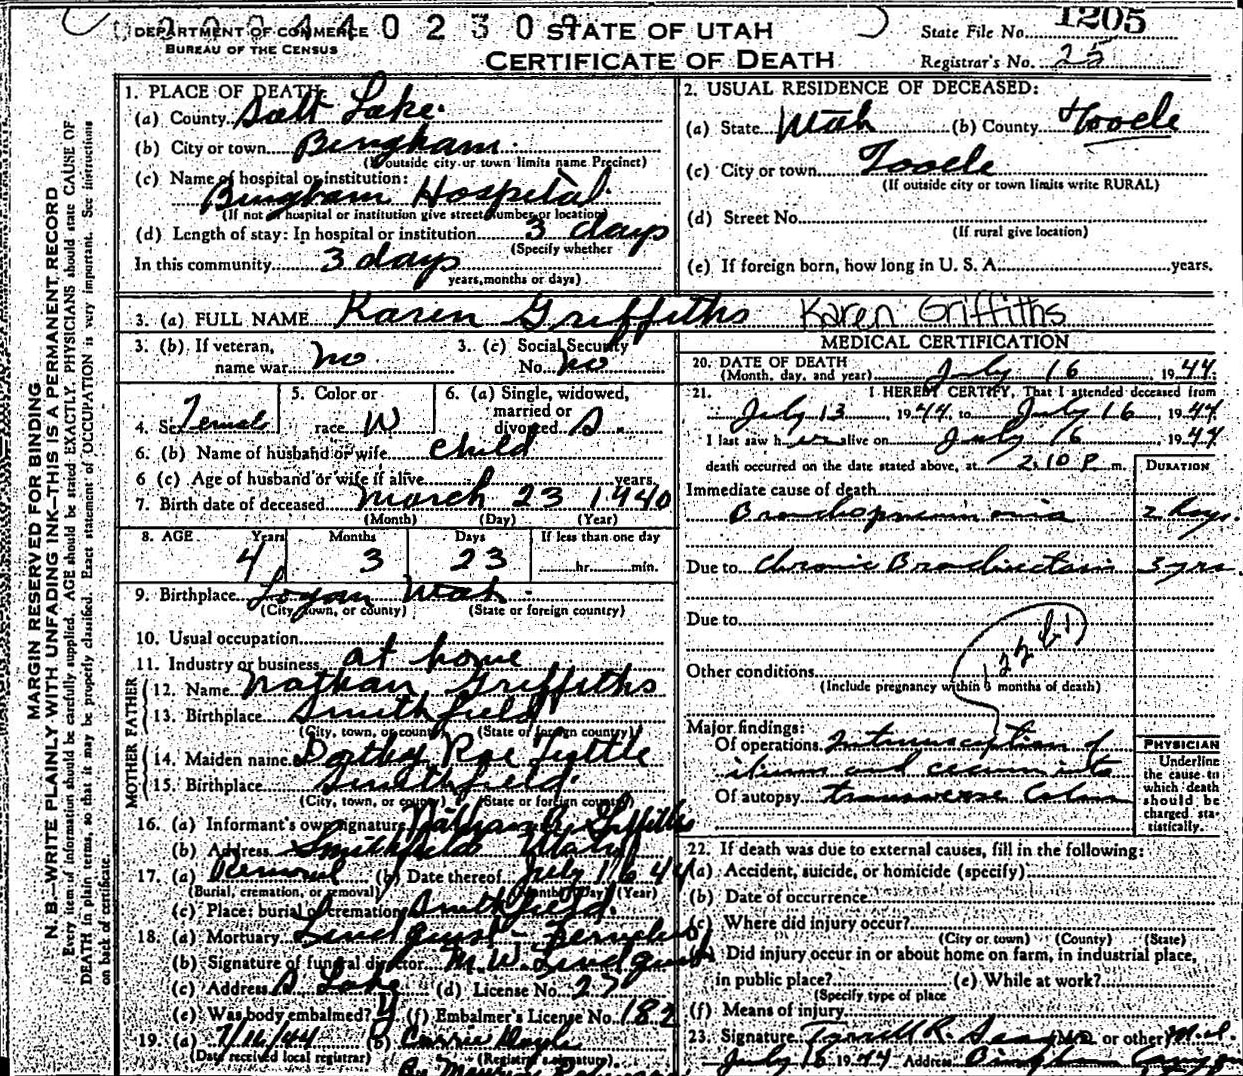 DEPARTMENT OF COMMERCE
BUREAU OF THE CENSUS
STATE OF UTAH
CERTIFICATE OF DEATH
State File No. 1205
Registrar's No. 25
MARGIN RESERVED FOR BINDING
N. B.—WRITE PLAINLY WITH UNFADING INK—THIS IS A PERMANENT RECORD
Every item of information should be carefully supplied. AGE should be stated EXACTLY. PHYSICIANS should state CAUSE OF
DEATH in plain terms, so that it may be properly classified. Exact statement of OCCUPATION is very important. See instructions
on back of certificate.
1. PLACE OF DEATH:
(a) County Salt Lake
(b) City or town Bingham
(If outside city or town limits name Precinct)
(c) Name of hospital or institution:
Bingham Hospital
(If not hospital or institution give street number or location)
(d) Length of stay: In hospital or institution 3 days
(Specify whether
In this community 3 days
years, months or days)
2. USUAL RESIDENCE OF DECEASED:
(a) State Utah (b) County Tooele
(c) City or town Tooele
(If outside city or town limits write RURAL)
(d) Street No.
(If rural give location)
(e) If foreign born, how long in U. S. A. years.
3. (a) FULL NAME Karen Griffiths Karen Griffiths
3. (b) If veteran, name war no
3. (c) Social Security No. no
4. Sex Female
5. Color or race W
6. (a) Single, widowed, married or divorced S.
6. (b) Name of husband or wife child
6 (c) Age of husband or wife if alive years
7. Birth date of deceased March 23 1940
(Month) (Day) (Year)
8. AGE Years Months Days If less than one day
4 3 23 hr. min.
9. Birthplace Logan Utah
(City, town, or county) (State or foreign country)
10. Usual occupation
11. Industry or business at home
FATHER
12. Name Nathan Griffiths
13. Birthplace Smithfield
(City, town, or county) (State or foreign country)
MOTHER
14. Maiden name Dorthy Rae Tuttle
15. Birthplace Smithfield
(City, town, or county) (State or foreign country)
16. (a) Informant's own signature Nathan R. Griffiths
(b) Address Smithfield Utah
17. (a) Removal (b) Date thereof July 16 44
(Burial, cremation, or removal) (Month) (Day) (Year)
(c) Place: burial or cremation Smithfield
18. (a) Mortuary Lindquist
(b) Signature of funeral director M.W. Lindquist
(c) Address S Lake (d) License No. 27
(e) Was body embalmed? y (f) Embalmer's License No. 182
19. (a) 7/16/44 (b) Carrie Doyle
(Date received local registrar) (Registrar's signature)
MEDICAL CERTIFICATION
20. DATE OF DEATH
(Month, day, and year) July 16 1944
21. I HEREBY CERTIFY, That I attended deceased from
July 13, 1944 to July 16, 1944
I last saw her alive on July 16, 1944
death occurred on the date stated above, at 2:10 P. m.
DURATION
Immediate cause of death
Bronchopneumonia 2 days.
Due to Chronic Bronchiectasis 3 yrs.
Due to
Other conditions
(Include pregnancy within 3 months of death)
Major findings:
Of operations Intussusception of
ileum and cecum into
Of autopsy transverse Colon
PHYSICIAN
Underline
the cause to
which death
should be
charged sta-
tistically.
22. If death was due to external causes, fill in the following:
(a) Accident, suicide, or homicide (specify)
(b) Date of occurrence
(c) Where did injury occur?
(City or town) (County) (State)
(d) Did injury occur in or about home on farm, in industrial place,
in public place? (e) While at work?
(Specify type of place
(f) Means of injury
23. Signature R. (M.D. or other) M.D.
July 16 1944 Address Bingham Canyon